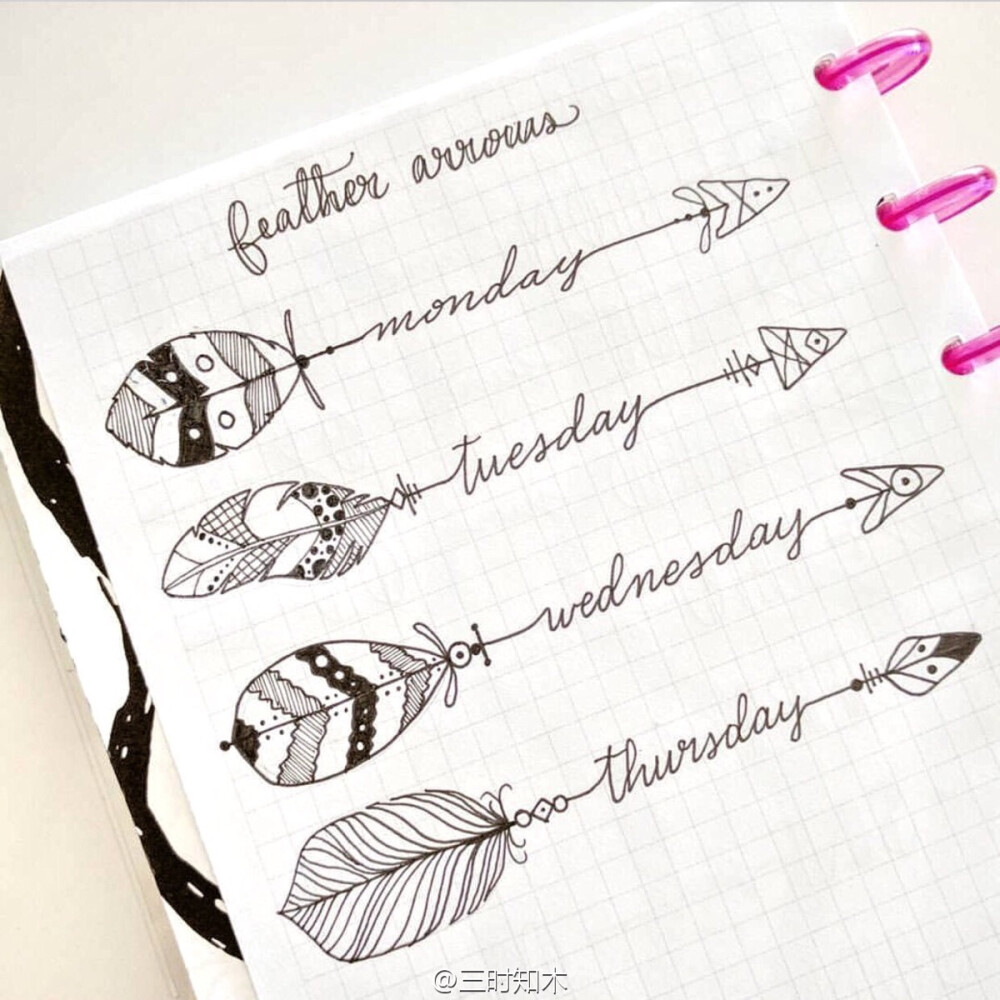 feather arrows
monday
tuesday
wednesday
thursday
@三时知木